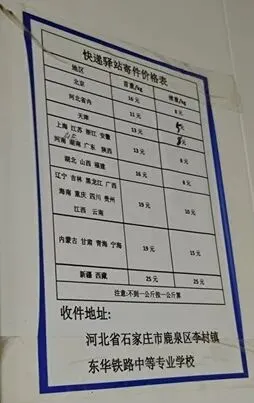 快递驿站寄件价格表
地区 首重/kg 续重/kg
北京 16 元 8 元
河北省内 11 元 5
天津 13 元 8
上海 江苏 浙江 安徽
河南 湖南 广东 陕西 13 元 8 元
湖北 山西 福建 16 元 8 元
辽宁 吉林 黑龙江 广西
海南 重庆 四川 贵州 19 元 10 元
江西 云南
内蒙古 甘肃 青海 宁海 19 元 15 元
新疆 西藏 25 元 25 元
注意:不到一公斤按一公斤算
收件地址:
河北省石家庄市鹿泉区李村镇
东华铁路中等专业学校